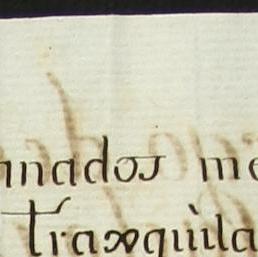 nnados me
tranquila